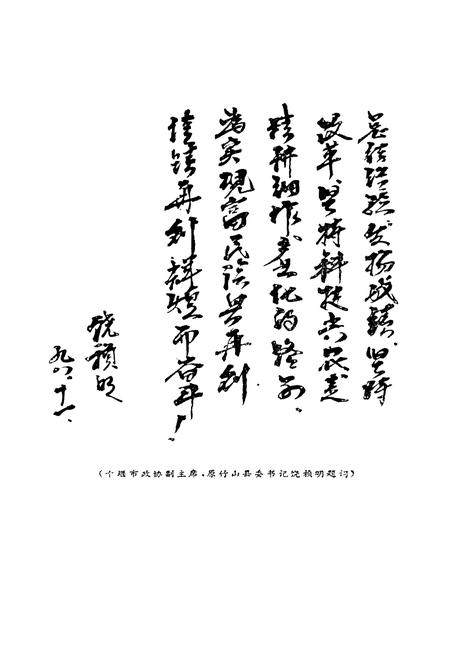 总结经验发扬成绩，坚持
改革，坚持科技兴农走
精耕细作产业化的路子。
为实现富民强县再创
佳绩再创辉煌而奋斗！
饶祯明
九八、十一、
（十堰市政协副主席、原竹山县委书记饶祯明题词）